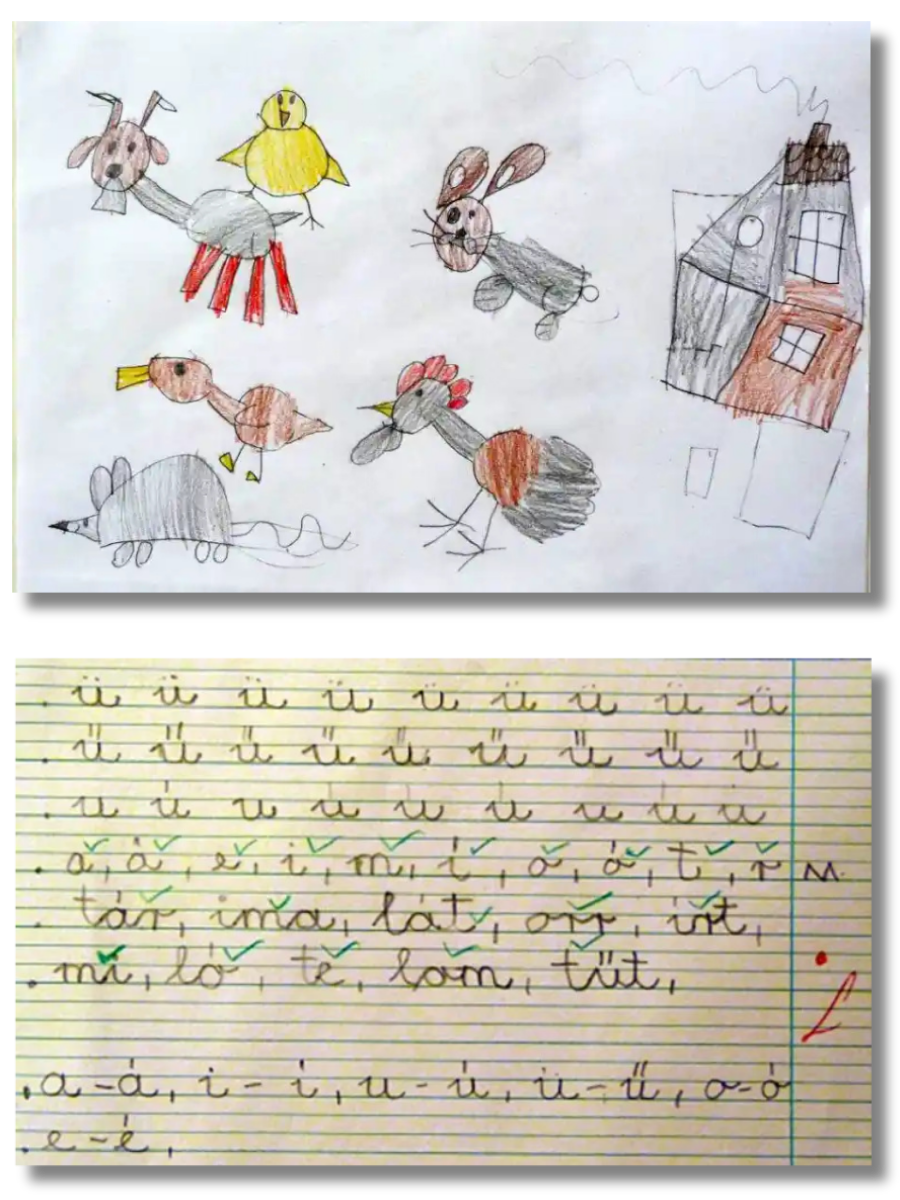 . ü ü ü ü ü ü ü ü ü
. ű ű ű ű ű ű ű ű ű
. u ú u ú u ú u ú u
. a, á, e, i, m, í, o, ó, t, r
. tár, ima, lát, orr, írt,
. mi, ló, te, lom, tűt,
. a-á, i-í, u-ú, ü-ű, o-ó
. e-é,